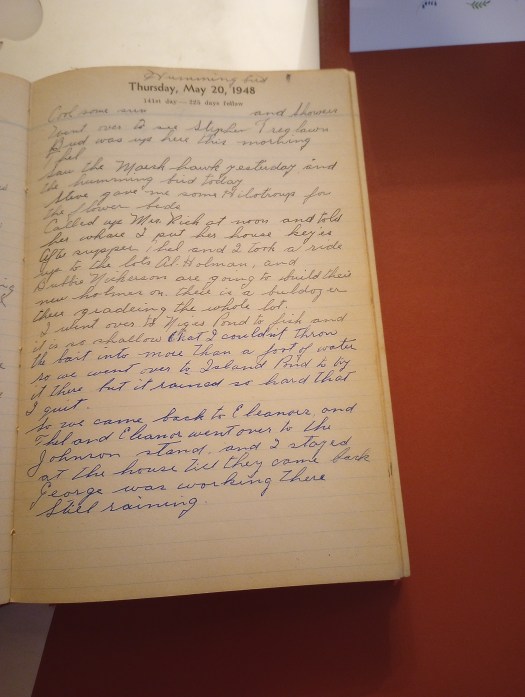 Humming bird
Thursday, May 20, 1948
141st day — 225 days follow
Cool some sun and Showers
Went over to see Stephen Treglawn
Bud was up here this morning
Saw the Marsh hawk yesterday and
the humming bird today
Steve gave me some Hilotroups for
the flower beds
Called up Mrs. Rich at noon and told
her where I put her house keyes
After supper, I hel and I took a ride
up to the lots Al. Holman, and
Bubbie Nickerson are going to build their
new homes on. there is a buldozer
there gradeing the whole lot.
I went over to Pond to fish and
it is so shallow that I couldn't throw
the bait into more than a foot of water
so we went over to Island Pond to try
it there but it rained so hard that
I quit.
So we came back to Eleanors, and
Thel and Eleanor went over to the
Johnson stand, and I stayed
at the house till they came back
George was working there
Still raining.